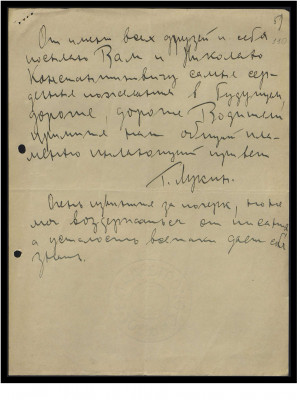 От имени всех друзей и себя
посылаю Вам и Николаю
Константиновичу самые сер-
дечные пожелания в будущем,
дорогие, дорогие Водители
примите наш общий пла-
менно пылающий привет
Г. Лукин.
Очень извините за почерк, но не
мог воздержаться от писания
а усталость все-таки дает себя
знать.